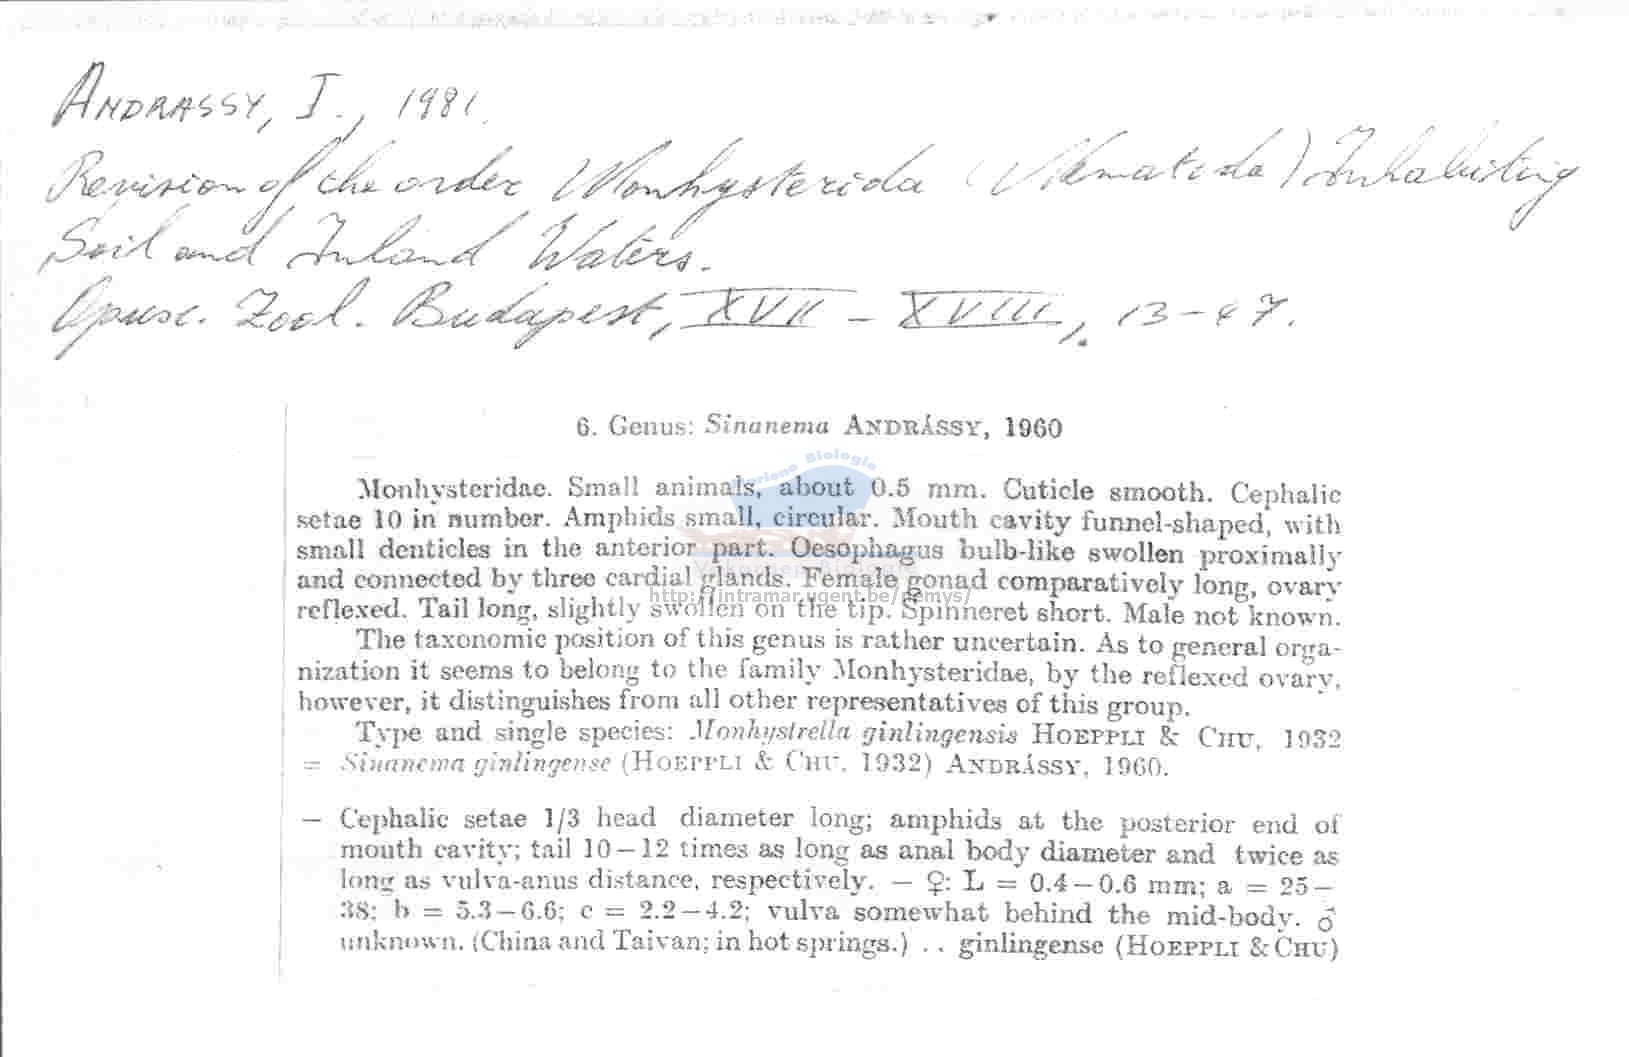 ANDRASSY, I., 1981.
Revision of the order Monhysterida (Nematoda) Inhabiting
Soil and Inland Waters.
Opusc. Zool. Budapest, XVII – XVIII, 13-47.
6. Genus: Sinanema ANDRÁSSY, 1960
Mariene Biologie
Monhysteridae. Small animals, about 0.5 mm. Cuticle smooth. Cephalic
setae 10 in number. Amphids small, circular. Mouth cavity funnel-shaped, with
small denticles in the anterior part. Oesophagus bulb-like swollen proximally
and connected by three cardial glands. Female gonad comparatively long, ovary
http://intramar.ugent.be/nemys/
reflexed. Tail long, slightly swollen on the tip. Spinneret short. Male not known.
The taxonomic position of this genus is rather uncertain. As to general orga-
nization it seems to belong to the family Monhysteridae, by the reflexed ovary,
however, it distinguishes from all other representatives of this group.
Type and single species: Monhystrella ginlingensis HOEPPLI & CHU, 1932
= Sinanema ginlingense (HOEPPLI & CHU, 1932) ANDRÁSSY, 1960.
— Cephalic setae 1/3 head diameter long; amphids at the posterior end of
mouth cavity; tail 10–12 times as long as anal body diameter and twice as
long as vulva-anus distance, respectively. — ♀: L = 0.4–0.6 mm; a = 25–
38; b = 5.3–6.6; c = 2.2–4.2; vulva somewhat behind the mid-body. ♂
unknown. (China and Taivan; in hot springs.) . . ginlingense (HOEPPLI & CHU)